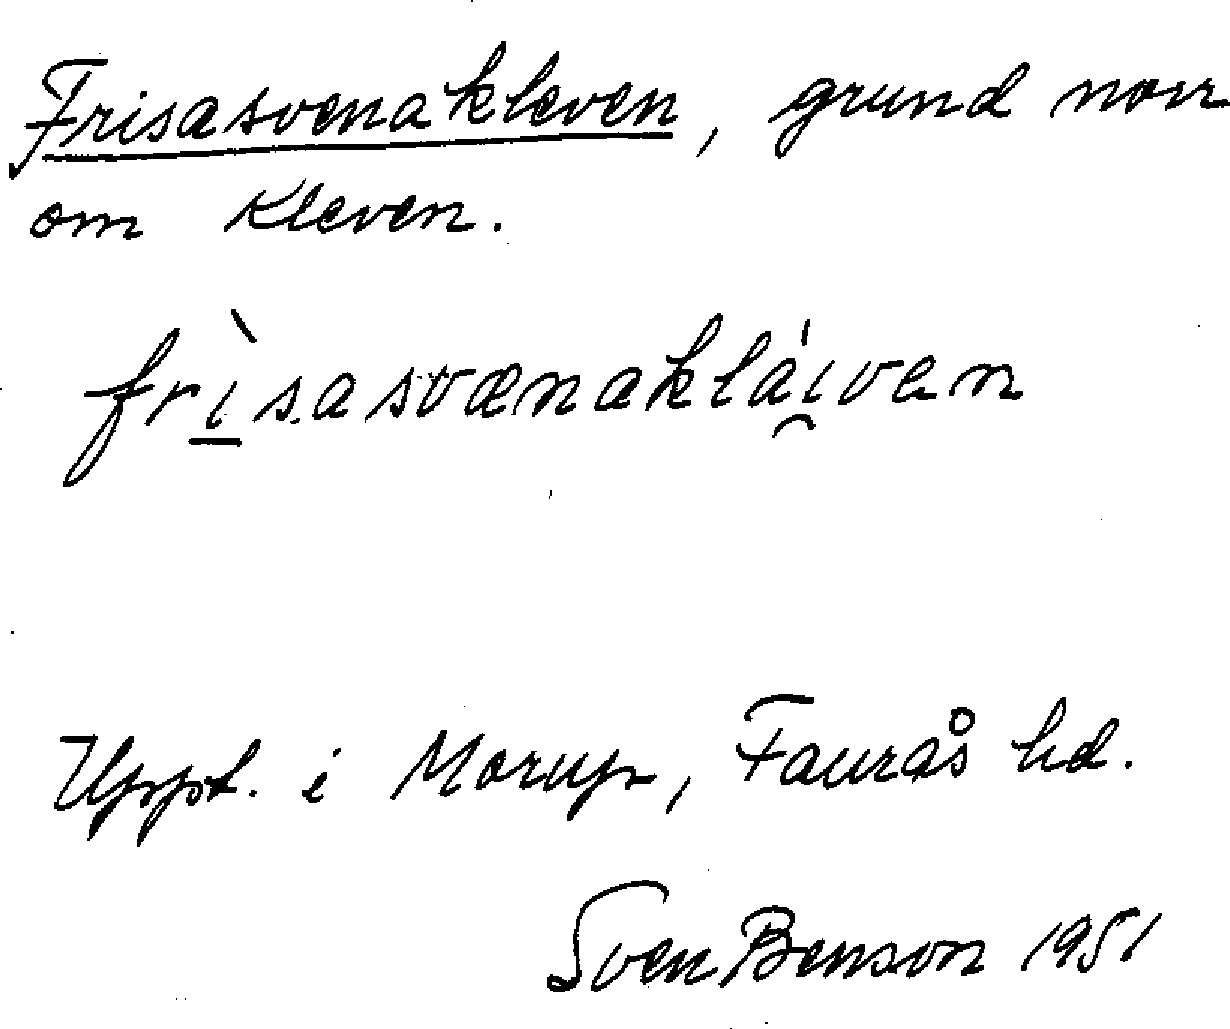 Frisasvenakleven, grund norr
om Kleven.
frìsasvænakláiven
Uppt. i Morup, Faurås hd.
Sven Benson 1951